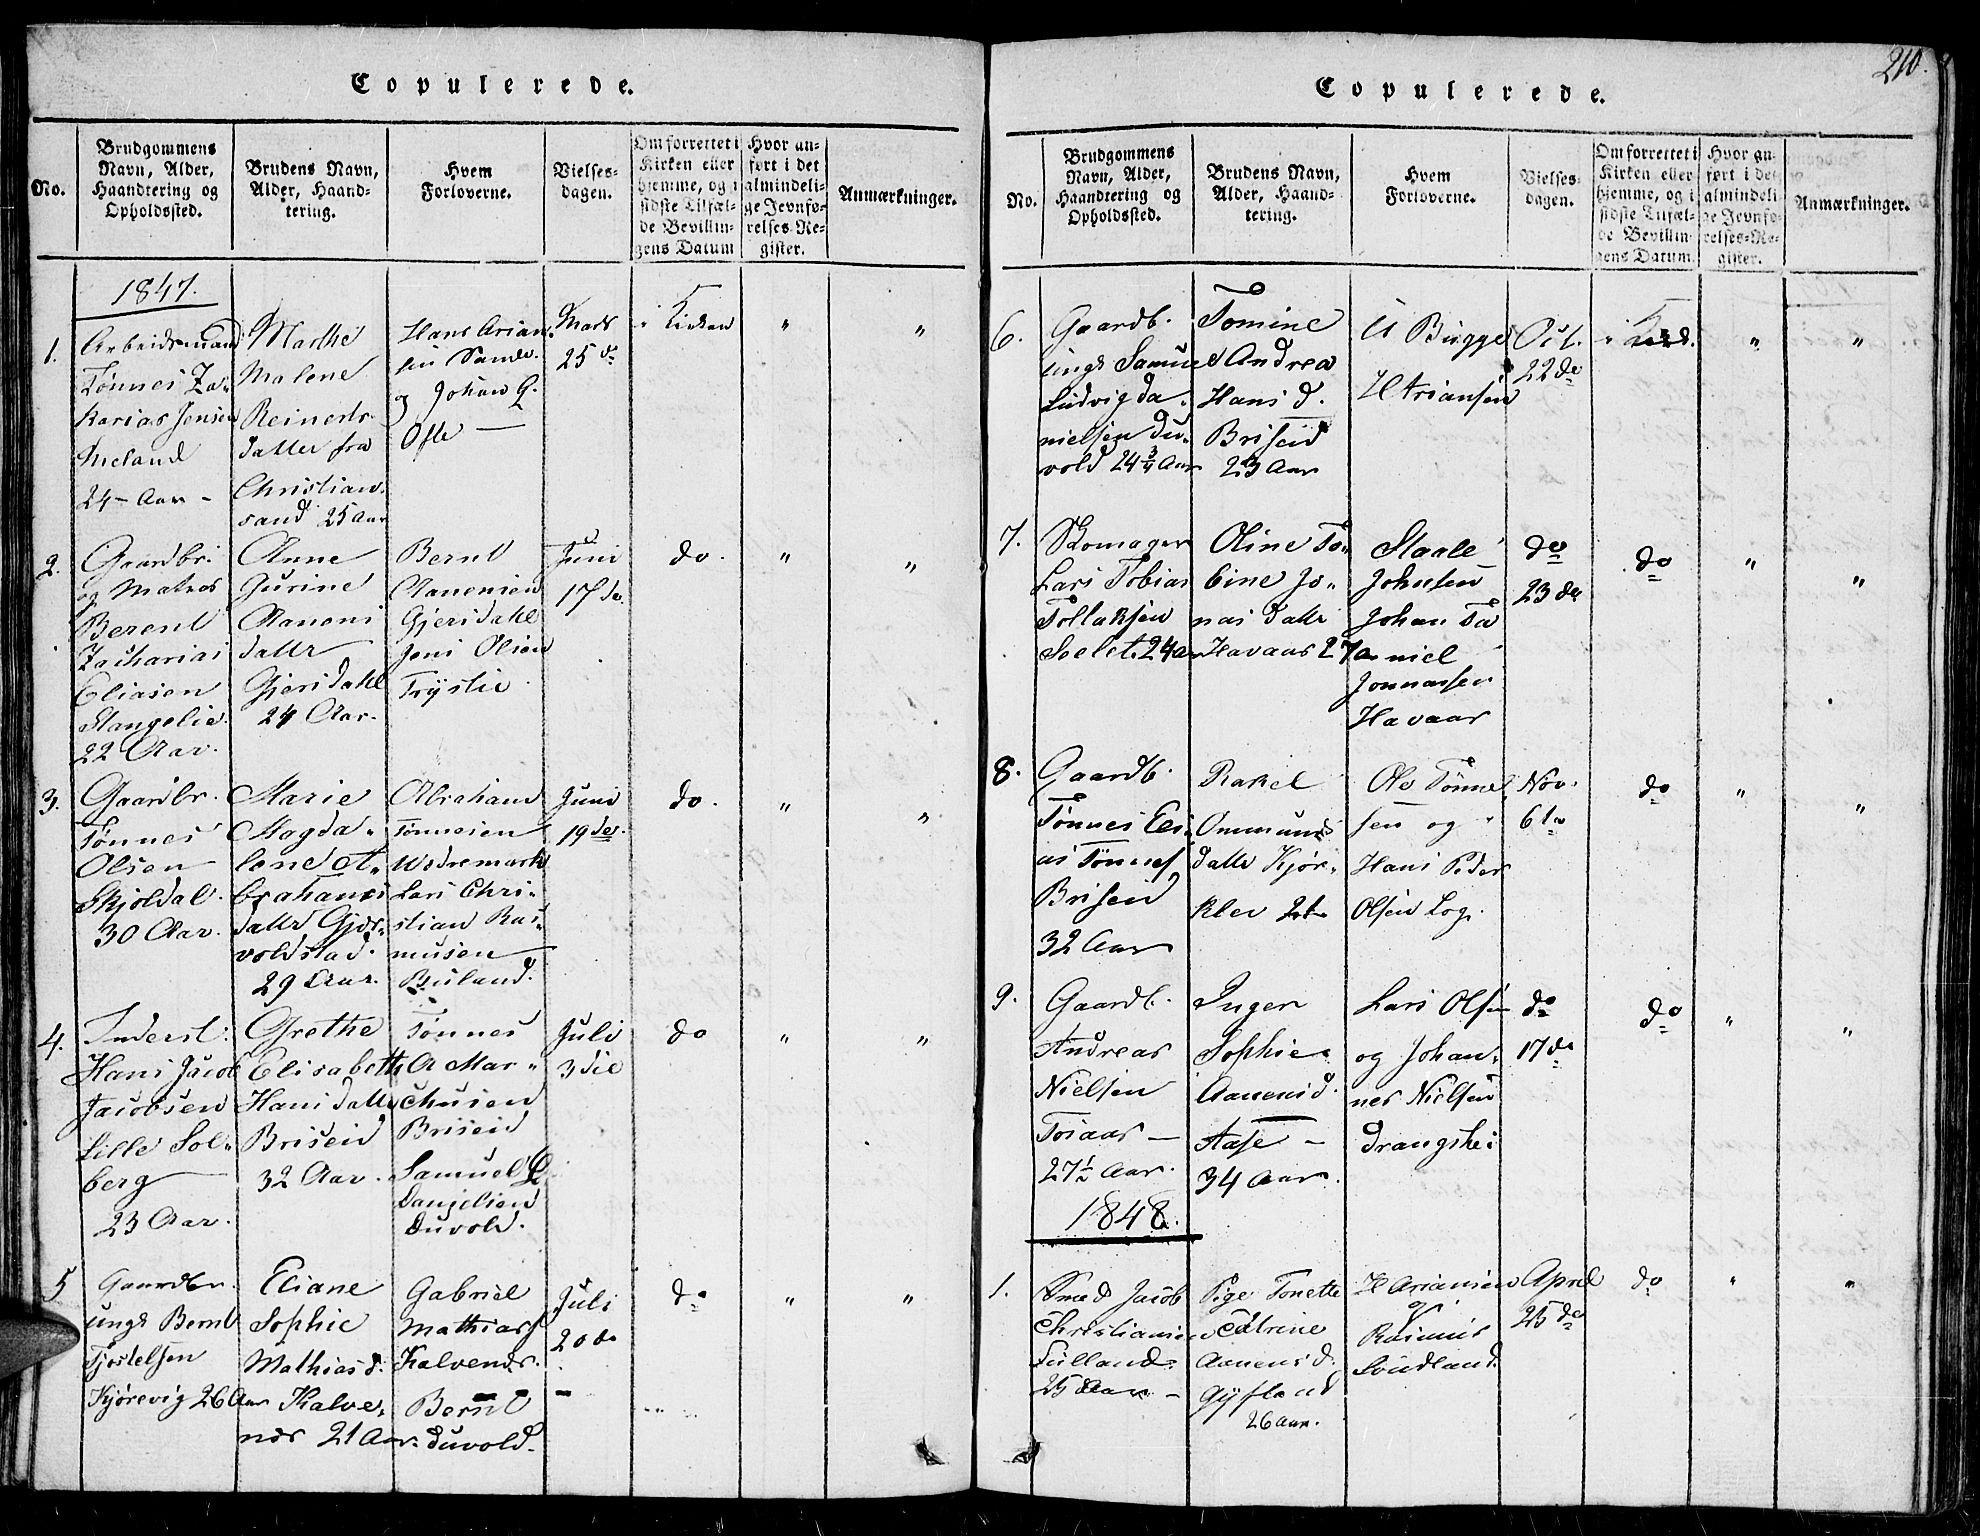 Copulerede.
No.
Brudgommens
Navn, Alder,
Haandtering og
Opholdssted.
Brudens Navn,
Alder, Haand-
tering.
Hvem
Forloverne.
Vielses-
dagen.
Om forrettet i
Kirken eller
hjemme, og i
sidste Tilfæl-
de Bevillin-
gens Datum
Hvor an-
ført i det
almindeli-
ge Jevnfø-
relses-Re-
gister.
Anmærkninger.
1847.
1.
Arbeidsmand
Tønnes Za-
karias Jensen
Meland
24 - Aar -
Marthe
Malene
Reinerts
datter fra
Christian-
sand 25 Aar
Hans Arian
sen
og Johan G.
Ofte —
Mars
25 d.
i Kirken
"
"
2.
Gaardbr.
og Matros
Berent
Zacharias
Eliasen
Stangelie
22 Aar.
Anne
Gurine
Aanons
datter
Gjersdahl
24 Aar.
Bernt
Aanensen
Gjersdahl
Jens Olsen
Trystie
Juni
17 de.
do.
"
"
3.
Gaardbr.
Tønnes
Olsen
Skjoldal
30 Aar.
Marie
Magda-
lene A-
brahams
datter Gjer-
voldstad.
29 Aar.
Abraham
Tønnesen
Lars Chri-
stian Ras-
musen
Buland.
Juni
19 de.
do.
"
"
4.
Inderst:
Hans Jacob
Jacobsen
Lille Sol-
berg
23 Aar.
Grethe
Elisabeth
Hans datter
Briseid
32 Aar.
Tønnes
A Mar-
cusen
Briseid
Samuel L
Danielsen
Duvold.
Juli
3 die
do
"
"
5
Gaardbr.
ungk Bernt
Tjostelsen
Kjørevig 26 Aar
Eliane
Sophie
Mathiasd.
Kalve-
nes 21 Aar.
Gabriel
Mathiass
Kalvenes.
Bernt
Duvold.
Juli
20 de
do
"
"
210.
Copulerede.
No.
Brudgommens
Navn, Alder,
Haandtering og
Opholdssted.
Brudens Navn,
Alder, Haand-
tering.
Hvem
Forloverne.
Vielses-
dagen.
Om forrettet i
Kirken eller
hjemme, og i
sidste Tilfæl-
de Bevillin-
gens Datum.
Hvor an-
ført i det
almindeli-
ge Jevnfø-
relses-Re-
gister.
Anmærkninger.
6.
Gaardb.
ungk Samuel
Ludvig Da-
nielsen Du-
vold 24 3/4 Aar
Tomine
Andrea
Hans d.
Briseid
23 Aar
Bugge
H Ariansen
Oct.
22 de
i Kirk.
"
"
7.
Skomager
Lars Tobias
Tollaksen
Seelet. 24 a
Oline To-
bine Jo-
nas datter
Havaas 27 a
Staale
Johnsen
Johan Da
niel
Jonnassen
Havaas
do
23 de
do
"
"
8.
Gaardb.
Tønnes Eli-
as Tønnes
Briseid
32 Aar
Rakel
Ommunds
datter Kjør-
klev
Ole Tønne
sen og
Hans Peder
Olsen Log.
Nov.
6 te
do
"
"
9.
Gaardb.
Andreas
Nielsen
Tosaas —
27 1/2 Aar.
Inger
Sophie
Aanensd.
Aase —
34 Aar.
Lars Olsen
og Johan-
nes Nielsen
Drangshei
do
17 de
do
"
"
1848.
1.
Smed Jacob
Christiansen
Sulland
25 Aar -
Pige Tonette
Catrine
Aanensd.
Gyfland
26 Aar.
H Ariansen
og
Rasmus
Sindland.
April
25 de
do
"
"